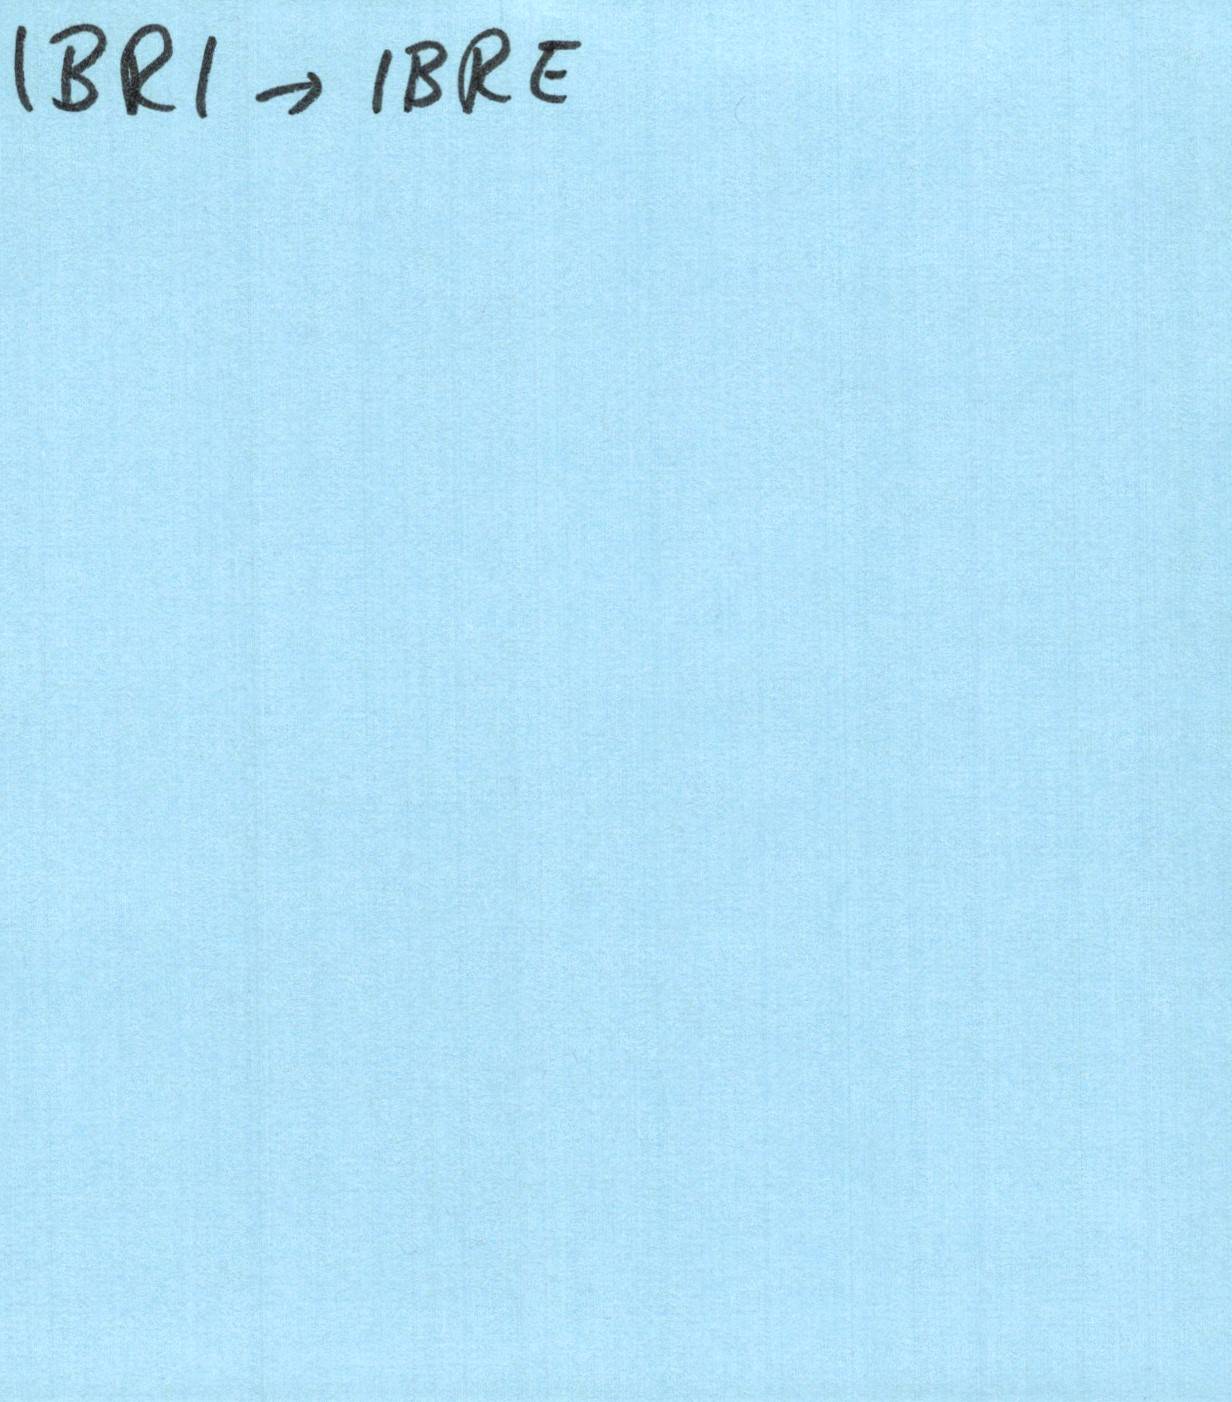 IBRI → IBRE